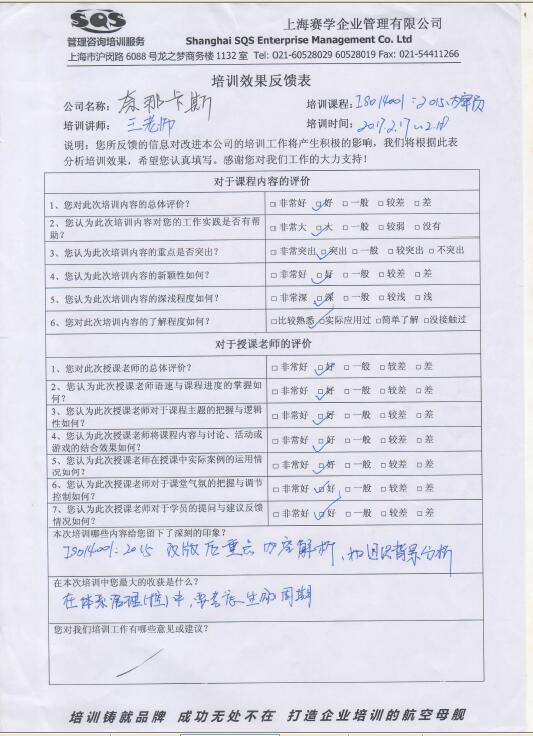 SQS
管理咨询培训服务
上海赛学企业管理有限公司
Shanghai SQS Enterprise Management Co. Ltd
上海市沪闵路 6088 号龙之梦商务楼 1132 室 Tel: 021-60528029 60528019 Fax: 021-54411266
培训效果反馈表
公司名称: 奈那卡斯 培训课程: ISO14001:2015内审员
培训讲师: 王老师 培训时间: 2017.2.17~2.18
说明：您所反馈的信息对改进本公司的培训工作将产生积极的影响，我们将根据此表
分析培训效果，希望您认真填写。感谢您对我们工作的大力支持！
对于课程内容的评价
1、您对此次培训内容的总体评价？ □ 非常好 □ 好 □ 一般 □ 较差 □ 差
2、您认为此次培训内容对您的工作实践是否有帮
助？ □ 非常大 □ 大 □ 一般 □ 较弱 □ 没有
3、您认为此次培训内容的重点是否突出？ □ 非常突出 □ 突出 □ 一般 □ 较突出 □ 不突出
4、您认为此次培训内容的新颖性如何？ □ 非常好 □ 好 □ 一般 □ 较差 □ 差
5、您认为此次培训内容的深浅程度如何？ □ 非常深 □ 深 □ 一般 □ 较浅 □ 浅
6、您对此次培训内容的了解程度如何？ □比较熟悉 □实际应用过 □简单了解 □没接触过
对于授课老师的评价
1、您对此次授课老师的总体评价？ □ 非常好 □ 好 □ 一般 □ 较差 □ 差
2、您认为此次授课老师语速与课程进度的掌握如
何？ □ 非常好 □ 好 □ 一般 □ 较差 □ 差
3、您认为此次授课老师对于课程主题的把握与逻辑
性如何？ □ 非常好 □ 好 □ 一般 □ 较差 □ 差
4、您认为此次授课老师将课程内容与讨论、活动或
游戏的结合效果如何？ □ 非常好 □ 好 □ 一般 □ 较差 □ 差
5、您认为此次授课老师在授课中实际案例的运用情
况如何？ □ 非常好 □ 好 □ 一般 □ 较差 □ 差
6、您认为此次授课老师对于课堂气氛的把握与调节
控制如何？ □ 非常好 □ 好 □ 一般 □ 较差 □ 差
7、您认为此次授课老师对于学员的提问与建议反馈
情况如何？ □ 非常好 □ 好 □ 一般 □ 较差 □ 差
本次培训哪些内容给您留下了深刻的印象？
ISO14001:2015 改版后重点内容解析、背景分析
在本次培训中您最大的收获是什么？
在体系管理中,要考虑生命周期
您对我们培训工作有哪些意见或建议？
培训铸就品牌 成功无处不在 打造企业培训的航空母舰